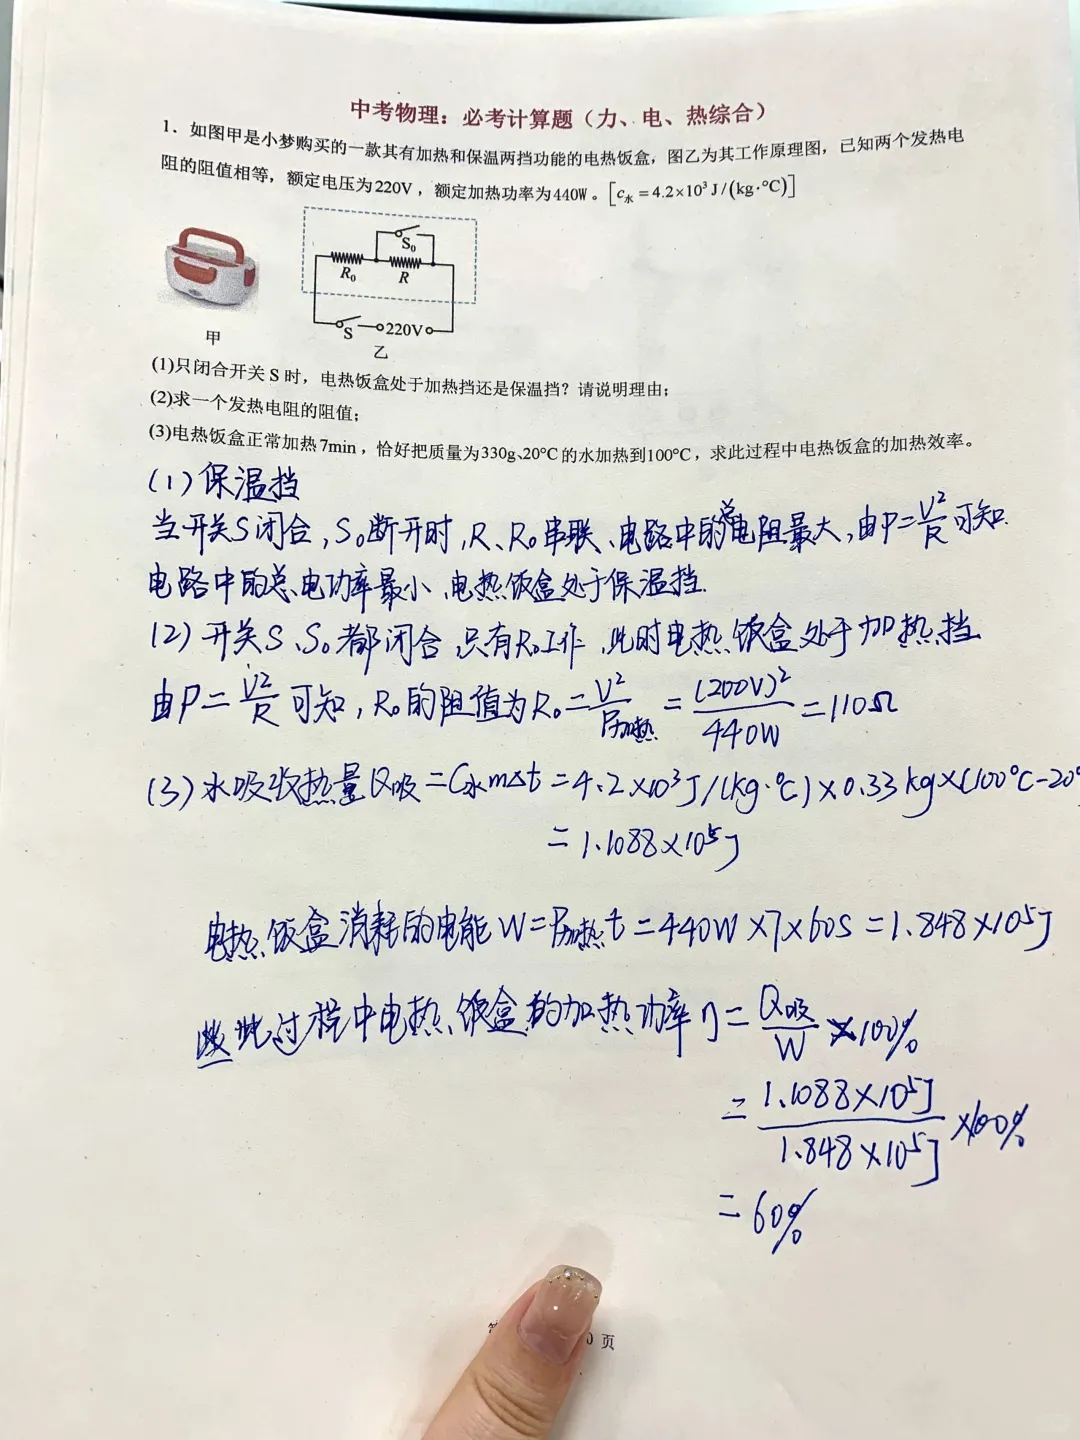 中考物理：必考计算题（力、电、热综合）
1．如图甲是小梦购买的一款其有加热和保温两挡功能的电热饭盒，图乙为其工作原理图，已知两个发热电
阻的阻值相等，额定电压为220V，额定加热功率为440W。[c水=4.2×10³J/(kg·°C)]
S₀
R₀ R
S 220V
甲 乙
(1)只闭合开关 S 时，电热饭盒处于加热挡还是保温挡？请说明理由；
(2)求一个发热电阻的阻值；
(3)电热饭盒正常加热7min，恰好把质量为330g、20°C的水加热到100°C，求此过程中电热饭盒的加热效率。
(1) 保温挡
当开关S闭合,S₀断开时,R、R₀串联、电路中的总电阻最大,由P=U²/R可知.
电路中的总电功率最小、电热饭盒处于保温挡.
(2) 开关S、S₀都闭合,只有R₀工作,此时电热饭盒处于加热挡
由P=U²/R可知,R₀的阻值为R₀=U²/P加热=(200V)²/440W=110Ω
(3) 水吸收热量Q吸=C水m△t=4.2×10³J/(kg·°C)×0.33kg×(100°C-20°
=1.1088×10⁵J
电热饭盒消耗的电能W=P加热t=440W×7×60S=1.848×10⁵J
此过程中电热饭盒的加热功率η=Q吸/W×100%
=1.1088×10⁵J/1.848×10⁵J×100%
=60%
页